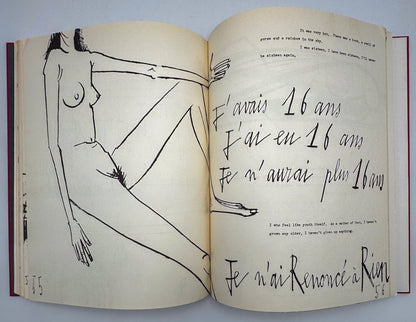 It was very hot. There was a
and a rainbow in the sky.
I was sixteen, I have been sixteen, I'll never
be sixteen again,
J'avais 16 ans
J'ai eu 16 ans
Je n'aurai plus 16 ans
I who feel like youth itself. As a matter of fact, I haven't
grown any older, I haven't given up anything.
Je n'ai Renoncé à Rien